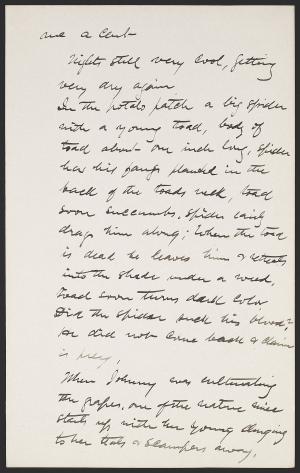 me a cent
Nights still very cool, getting
very dry again
In the potato patch a big spider
with a young toad, body of
toad about one inch long, spider
has his fangs planted in the
back of the toads neck, toad
soon succumbs, spider easily
drags him along; When the toad
is dead he leaves him & retreats
into the shade under a weed.
Toad soon turns dark color
Did the spider suck his blood?
He did not come back to claim
is prey,
When Johnny was cultivating
the grapes, one of the native mice
starts up with her young clinging
to her teats & scampers away,